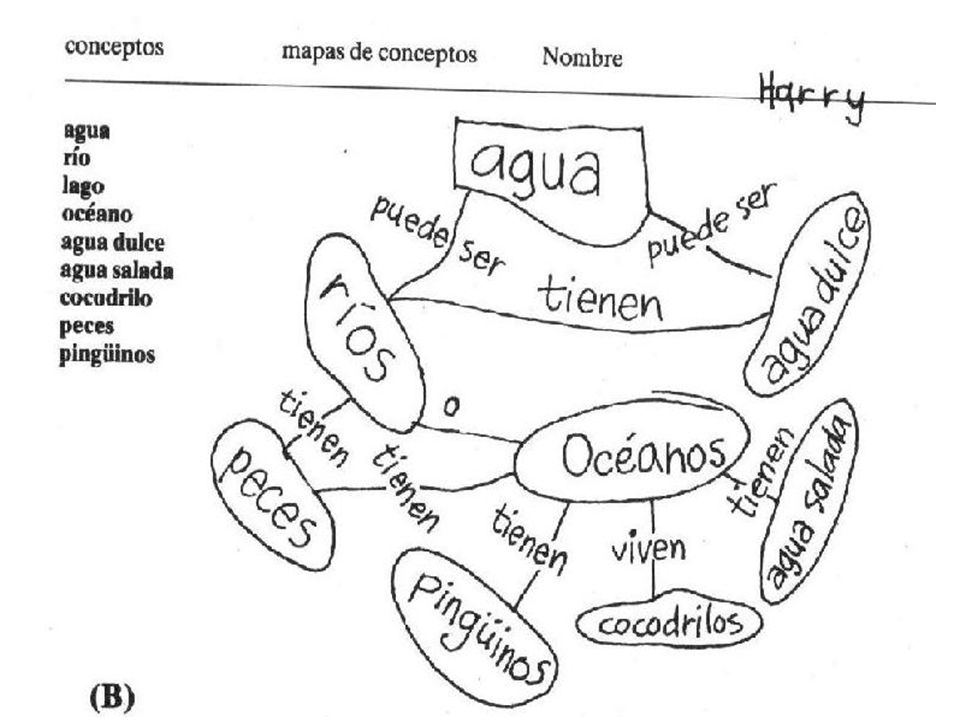 conceptos mapas de conceptos Nombre
Harry
agua
río
lago
océano
agua dulce
agua salada
cocodrilo
peces
pingüinos
agua
puede ser
puede ser
ríos
tienen
agua dulce
tienen
o
peces
tienen
Océanos
tienen
agua salada
tienen
viven
pingüinos
cocodrilos
(B)